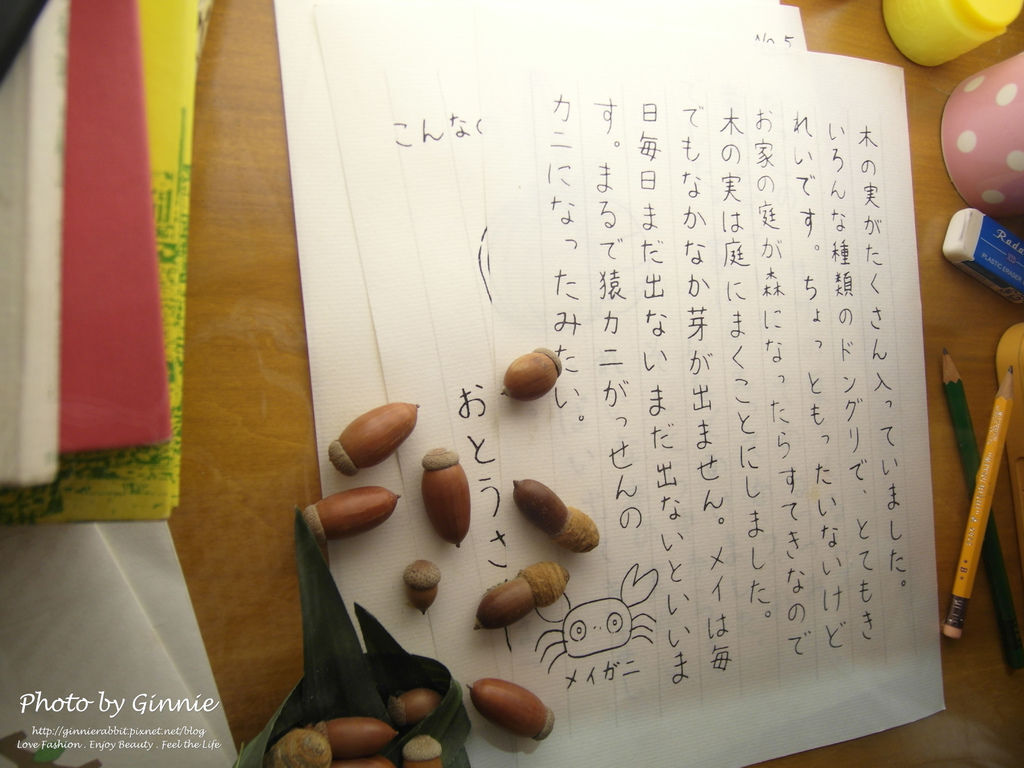 No 5
木の実がたくさん入っていました。
いろんな種類のドングリで、とてもき
れいです。ちょっともったいないけど
お家の庭が森になったらすてきなので
木の実は庭にまくことにしました。
でもなかなか芽が出ません。メイは毎
日毎日まだ出ないまだ出ないといいま
す。まるで猿カニがっせんの
カニになったみたい。
メイガニ
おとうさ
こんな
Rada
PLASTIC ERASER
Photo by Ginnie
http://ginnierabbit.pixnet.net/blog
Love Fashion . Enjoy Beauty . Feel the Life